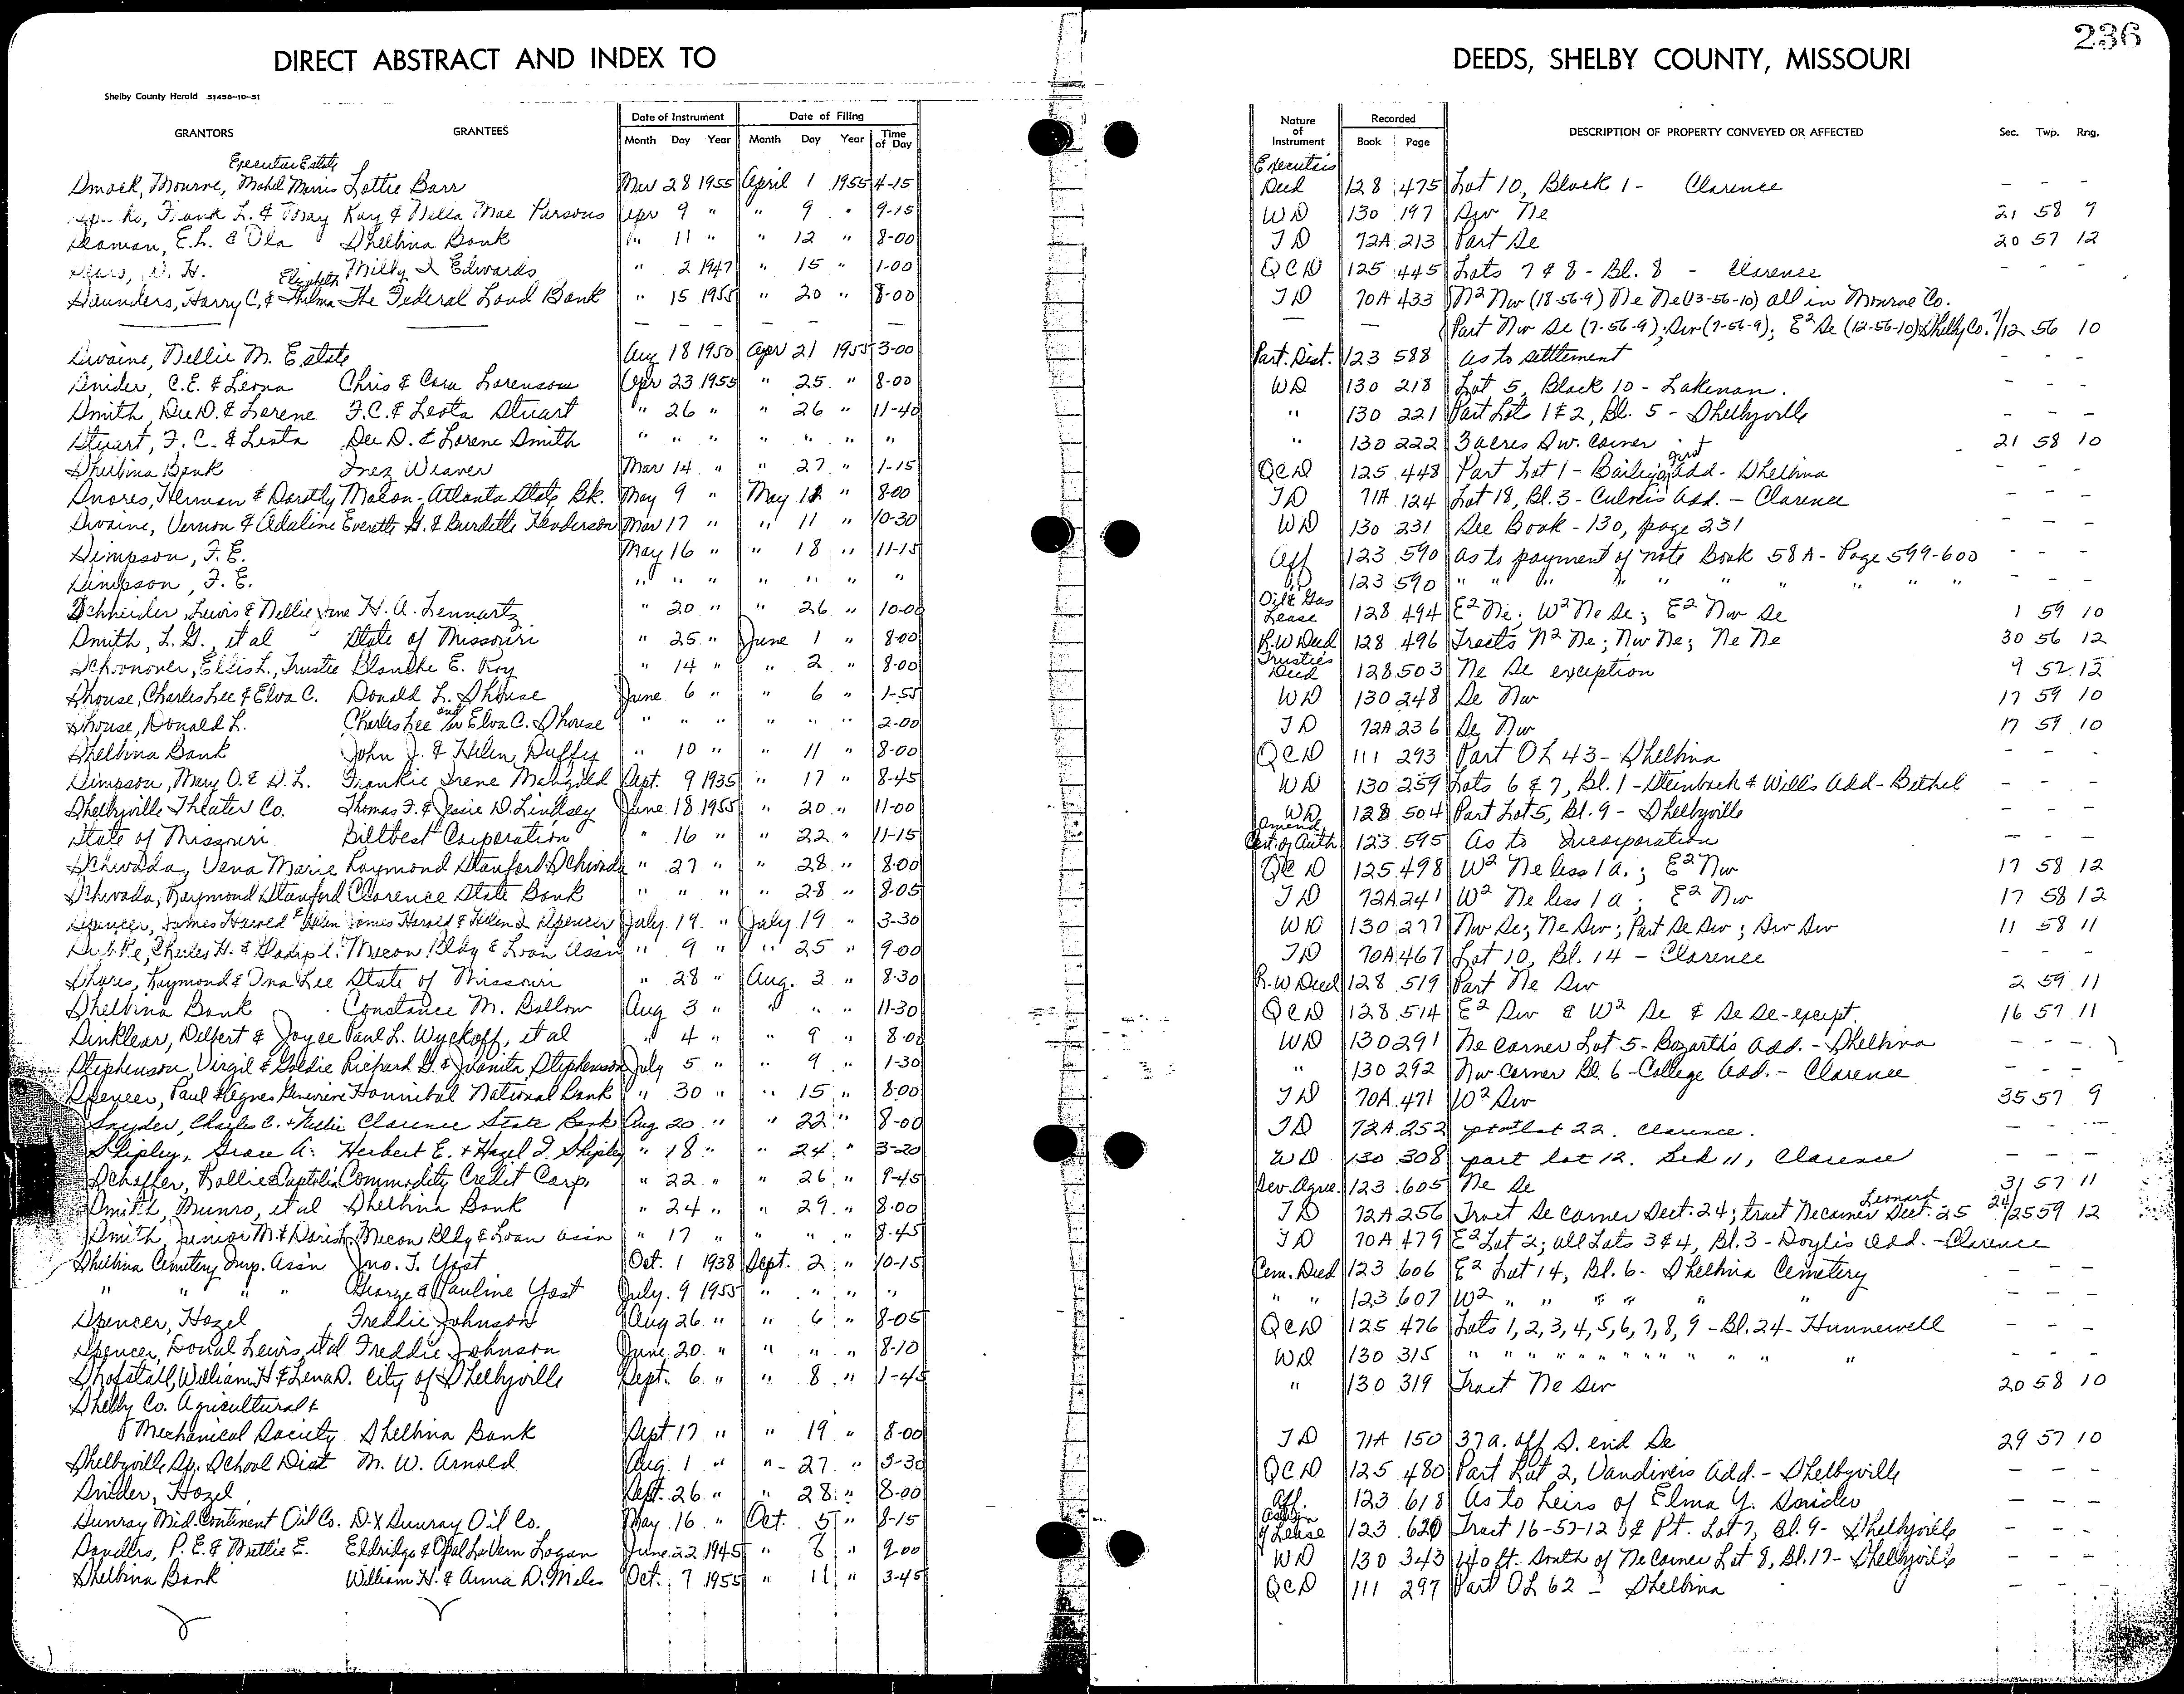 236
DIRECT ABSTRACT AND INDEX TO DEEDS, SHELBY COUNTY, MISSOURI
Shelby County Herald 51458-10-51
GRANTORS GRANTEES Date of Instrument Month Day Year Date of Filing Month Day Year Time of Day Nature of Instrument Recorded Book Page DESCRIPTION OF PROPERTY CONVEYED OR AFFECTED Sec. Twp. Rng.
Executrix Estate Executrix
Smock, Monroe, Mabel Morris Lottie Barr Mar 28 1955 April 1 1955 4-15 Deed 128 475 Lot 10, Block 1 - Clarence - - -
Frank L. & May Ray & Nella Mae Parsons Apr 9 " " 9 " 9-15 WD 130 197 Sw Ne 21 58 9
Seaman, E.L. & Ola Shelbina Bank " 11 " " 12 " 8-00 TD 72A 213 Part Se 20 57 12
Sears, W. H. Milby I Edwards " 2 1947 " 15 " 1-00 QCD 125 445 Lots 7 & 8 - Bl. 8 - Clarence - - -
Saunders, Harry C. & Elizabeth Thelma The Federal Land Bank " 15 1955 " 20 " 8-00 TD 70A 433 N2 Nw (18-56-9) Ne Ne (13-56-10) all in Monroe Co.
— — - - - - - - - — — Part Nw Se (7-56-9); Sw (7-56-9); E2 Se (12-56-10) Shelby Co. 7/12 56 10
Swaine, Nellie M. Estate Aug 18 1950 Apr 21 1955 3-00 Part. Dist. 123 588 as to settlement - - -
Snider, C.E. & Leona Chris & Cora Sorenson Apr 23 1955 " 25 " 8-00 WD 130 218 Lot 5, Block 10 - Lakenan. - - -
Smith, Dee D. & Lorene F.C. & Leota Stuart " 26 " " 26 " 11-40 " 130 221 Part Lots 1 & 2, Bl. 5 - Shelbyville - - -
Stuart, F. C. & Leota Dee D. & Lorene Smith " " " " " " " " 130 222 3 acres Sw. corner 21 58 10
Shelbina Bank Inez Weaver Mar 14 " " 27 " 1-15 QCD 125 448 Part Lot 1 - Bailey's first add - Shelbina - - -
Snores, Herman & Dorothy Macon-Atlanta State Bk. May 9 " May 12 " 8-00 TD 71A 124 Lot 18, Bl. 3 - Culver's Add. - Clarence - - -
Swaine, Vernon & Adaline Everett G. & Burdette Henderson Mar 17 " " 11 " 10-30 WD 130 231 See Book - 130, page 231 - - -
Simpson, F. E. May 16 " " 18 " 11-15 Aff 123 590 as to payment of note Book 58A - Page 599-600 - - -
Simpson, F. E. " " " " " " " 123 590 " " " " " " " " " - - -
Schneider, Lewis & Nellie Jane H. A. Lennartz " 20 " " 26 " 10-00 Oil & Gas Lease 128 494 E2 Ne; W2 Ne Se; E2 Nw Se 1 59 10
Smith, L. G., et al State of Missouri " 25 " June 1 " 8-00 R.W Deed 128 496 Tracts N2 Ne; Nw Ne; Ne Ne 30 56 12
Schoonover, Ellis L., Trustee Blanche E. Roy " 14 " " 2 " 8-00 Trustee's Deed 128 503 Ne Se exception 9 52 12
Shouse, Charles Lee & Elva C. Donald L. Shouse June 6 " " 6 " 1-55 WD 130 248 Se Nw 17 59 10
Shouse, Donald L. Charles Lee and/or Elva C. Shouse " " " " " " 2-00 TD 72A 236 Se Nw 17 59 10
Shelbina Bank John J. & Helen Duffy " 10 " " 11 " 8-00 QCD 111 293 Part OL 43 - Shelbina - - -
Simpson, Mary O. & D. L. Frankie Irene Mangold Sept. 9 1935 " 17 " 8-45 WD 130 259 Lots 6 & 7, Bl. 1 - Steinbach & Will's Add - Bethel - - -
Shelbyville Theater Co. Thomas F. & Jessie D. Lindsey June 18 1955 " 20 " 11-00 WD 128 504 Part Lot 5, Bl. 9 - Shelbyville - - -
State of Missouri Billbest Corporation " 16 " " 22 " 11-15 Amend. Cert. of Auth 123 595 As to Incorporation - - -
Schwada, Vena Marie Raymond Stanford Schwada " 27 " " 28 " 8-00 QCD 125 498 W2 Ne less 1 a.; E2 Nw 17 58 12
Schwada, Raymond Stanford Clarence State Bank " " " " 28 " 8-05 TD 72A 241 W2 Ne less 1 a; E2 Nw 17 58 12
Spencer, James Harold & Helen James Harold & Helen I Spencer July 19 " July 19 " 3-30 WD 130 277 Nw Se; Ne Sw; Part Se Sw; Sw Sw 11 58 11
Charles H. & Gladys L. Macon Bldg & Loan Assn " 9 " " 25 " 9-00 TD 70A 467 Lot 10, Bl. 14 - Clarence - - -
Shores, Raymond & Ona Lee State of Missouri " 28 " Aug. 3 " 8-30 R.W Deed 128 519 Part Ne Sw 2 59 11
Shelbina Bank Constance M. Ballow Aug 3 " " " " 11-30 QCD 128 514 E2 Sw & W2 Se & Se Se-except. 16 57 11
Sinklear, Delbert & Joyce Paul L. Wyckoff, et al " 4 " " 9 " 8-00 WD 130 291 Ne corner Lot 5 - Bozarth's Add. - Shelbina - - -
Stephenson, Virgil & Goldie Richard G. & Juanita Stephenson July 5 " " 9 " 1-30 " 130 292 Nw corner Bl. 6 - College Add. - Clarence - - -
Spencer, Paul & Agnes Genevieve Hannibal National Bank " 30 " " 15 " 8-00 TD 70A 471 W2 Sw 35 57 9
Snyder, Charles C. + Nellie Clarence State Bank Aug 20 " " 22 " 8-00 TD 72A 252 pt of lot 22. Clarence. - - -
Shipley, Grace A. Herbert E. + Hazel I. Shipley " 18 " " 24 " 3-20 WD 130 308 part lot 12. Blk 11, Clarence - - -
Schaffer, Rollie & Captolia Commodity Credit Corp. " 22 " " 26 " 9-45 Sev. Agree. 123 605 Ne Se 31 57 11
Smith, Munro, et al Shelbina Bank " 24 " " 29 " 8-00 TD 72A 256 Tract Se corner Sect. 24; tract Ne corner Leonard Sect. 25 24/25 59 12
Smith, Junior M. & Doris L. Macon Bldg & Loan Assn " 17 " " " " 8-45 TD 70A 479 E2 Lot 2; all Lots 3 & 4, Bl. 3 - Doyle's Add. - Clarence
Shelbina Cemetery Imp. Ass'n Jno. T. Yost Oct. 1 1938 Sept. 2 " 10-15 Cem. Deed 123 606 E2 Lot 14, Bl. 6 - Shelbina Cemetery - - -
" " " " George & Pauline Yost July. 9 1955 " " " " " " 123 607 W2 " " " " " " - - -
Spencer, Hazel Freddie Johnson Aug 26 " " 6 " 8-05 QCD 125 476 Lots 1, 2, 3, 4, 5, 6, 7, 8, 9 - Bl. 24 - Hunnewell - - -
Spencer, Donal Lewis, et al Freddie Johnson June 20 " " " " 8-10 WD 130 315 " " " " " " " " " " " " " - - -
Shofstall, William H. & Lena D. City of Shelbyville Sept. 6 " " 8 " 1-45 " 130 319 Tract Ne Sw 20 58 10
Shelby Co. Agricultural &
Mechanical Society Shelbina Bank Sept 17 " " 19 " 8-00 TD 71A 150 37 a. off S. end Se 29 57 10
Shelbyville School Dist M. W. Arnold Aug. 1 " " 27 " 3-30 QCD 125 480 Part Lot 2, Vandiver's Add. - Shelbyville - - -
Snider, Hazel Sept. 26 " " 28 " 8-00 Aff. 123 618 As to heirs of Elma Y. Snider - - -
Sunray Mid-Continent Oil Co. D-X Sunray Oil Co. May 16 " Oct. 5 " 8-15 Assign of Lease 123 620 Tract 16-57-12 & Pt. Lot 7, Bl. 9 - Shelbyville - - -
Sanders, P. E. & Mattie E. Eldridge & Opal LaVern Logan June 22 1945 " 8 " 9-00 WD 130 343 140 ft. South of Ne Corner Lot 8, Bl. 17 - Shelbyville - - -
Shelbina Bank William H. & Anna D. Miles Oct. 7 1955 " 11 " 3-45 QCD 111 297 Part OL 62 - Shelbina - - -